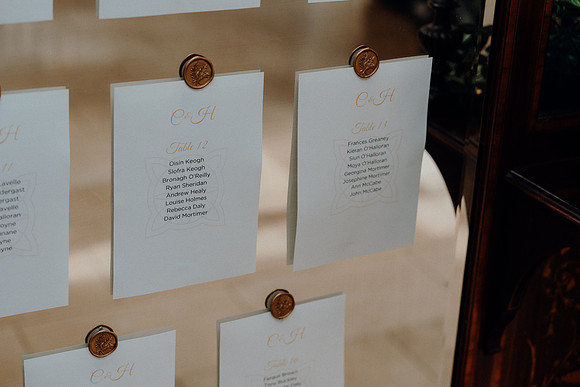 C & H
Table 12
Oisin Keogh
Siofra Keogh
Bronagh O'Reilly
Ryan Sheridan
Andrew Healy
Louise Holmes
Rebecca Daly
David Mortimer
C & H
Table 13
Frances Greaney
Kieran O'Halloran
Siun O'Halloran
Moya O'Halloran
Georgina Mortimer
Josephine Mortimer
Ann McCabe
John McCabe
H
11
C & H
C & H
Fergus Brown